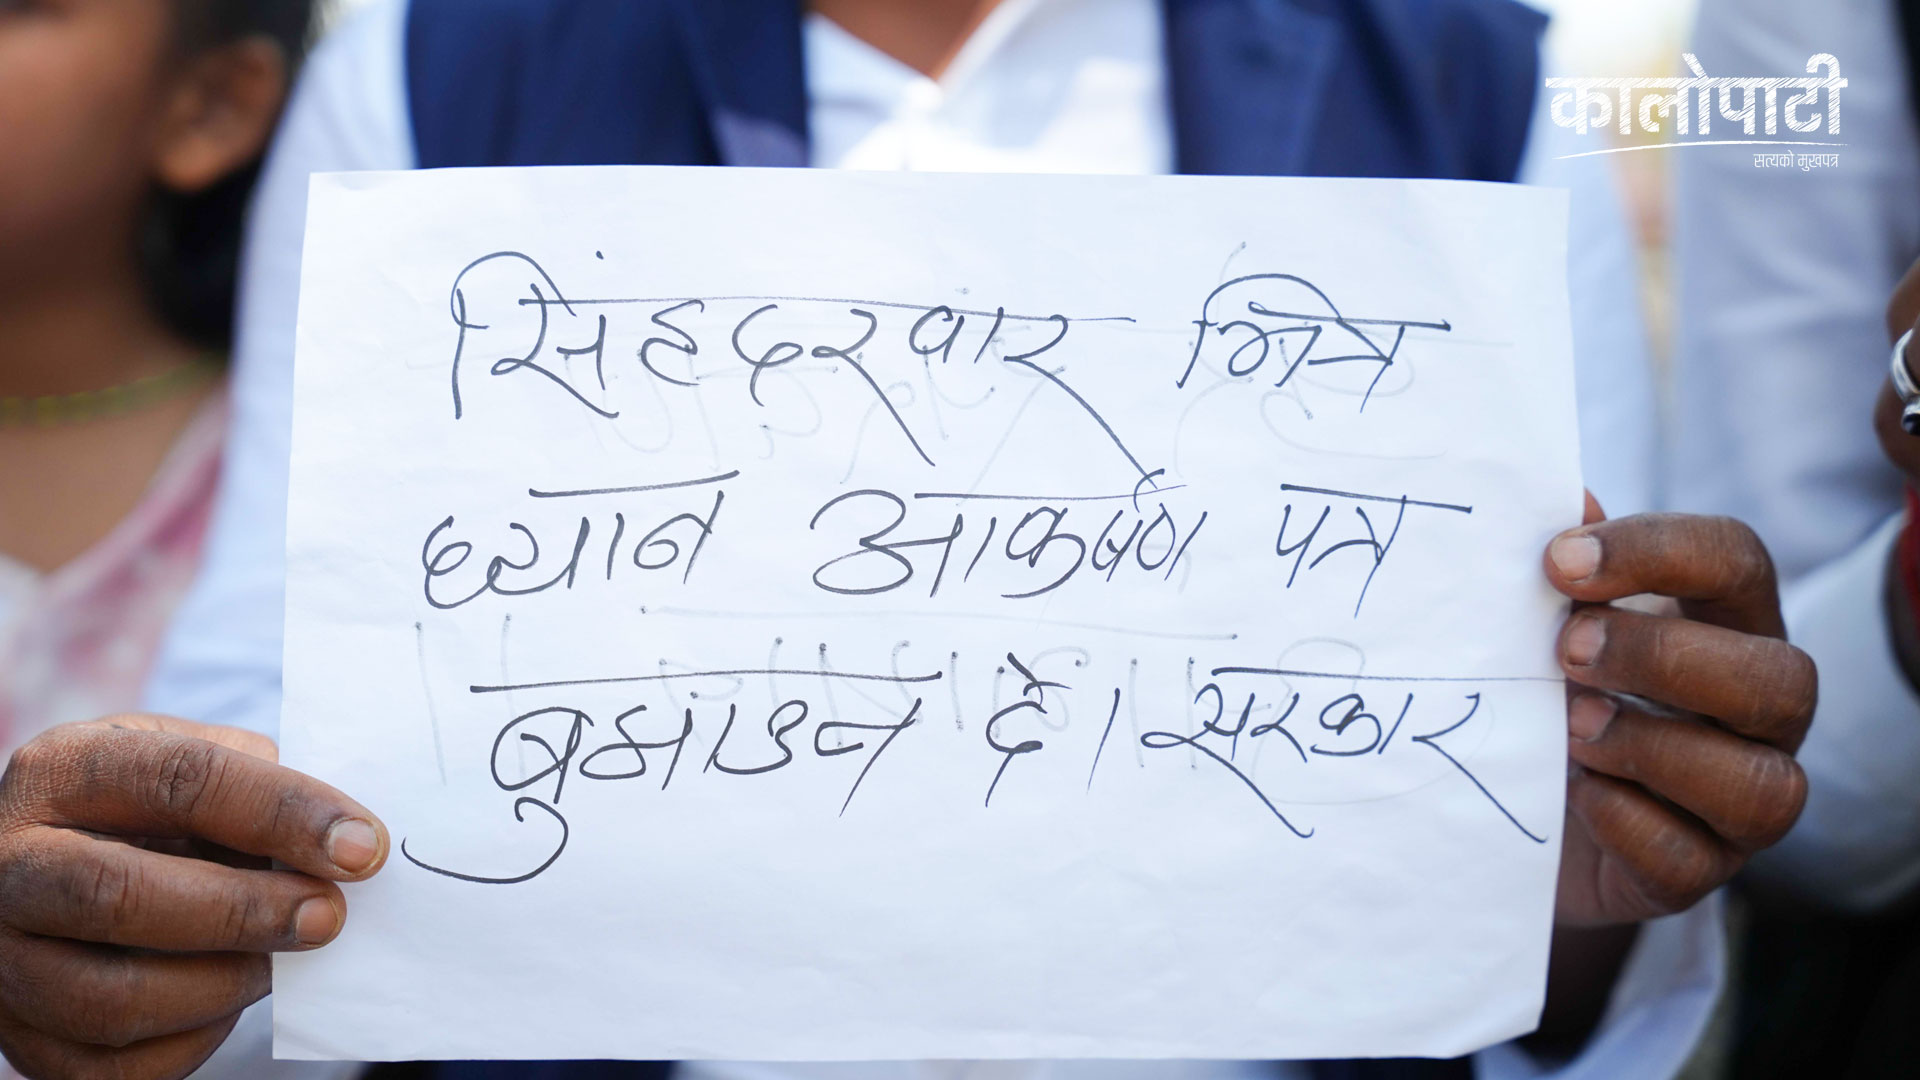 कालोपाटी
सत्यको मुखपत्र
सिंहदरवार भित्र
ध्यान आकर्षण पत्र
बुझाउन दे। सरकार